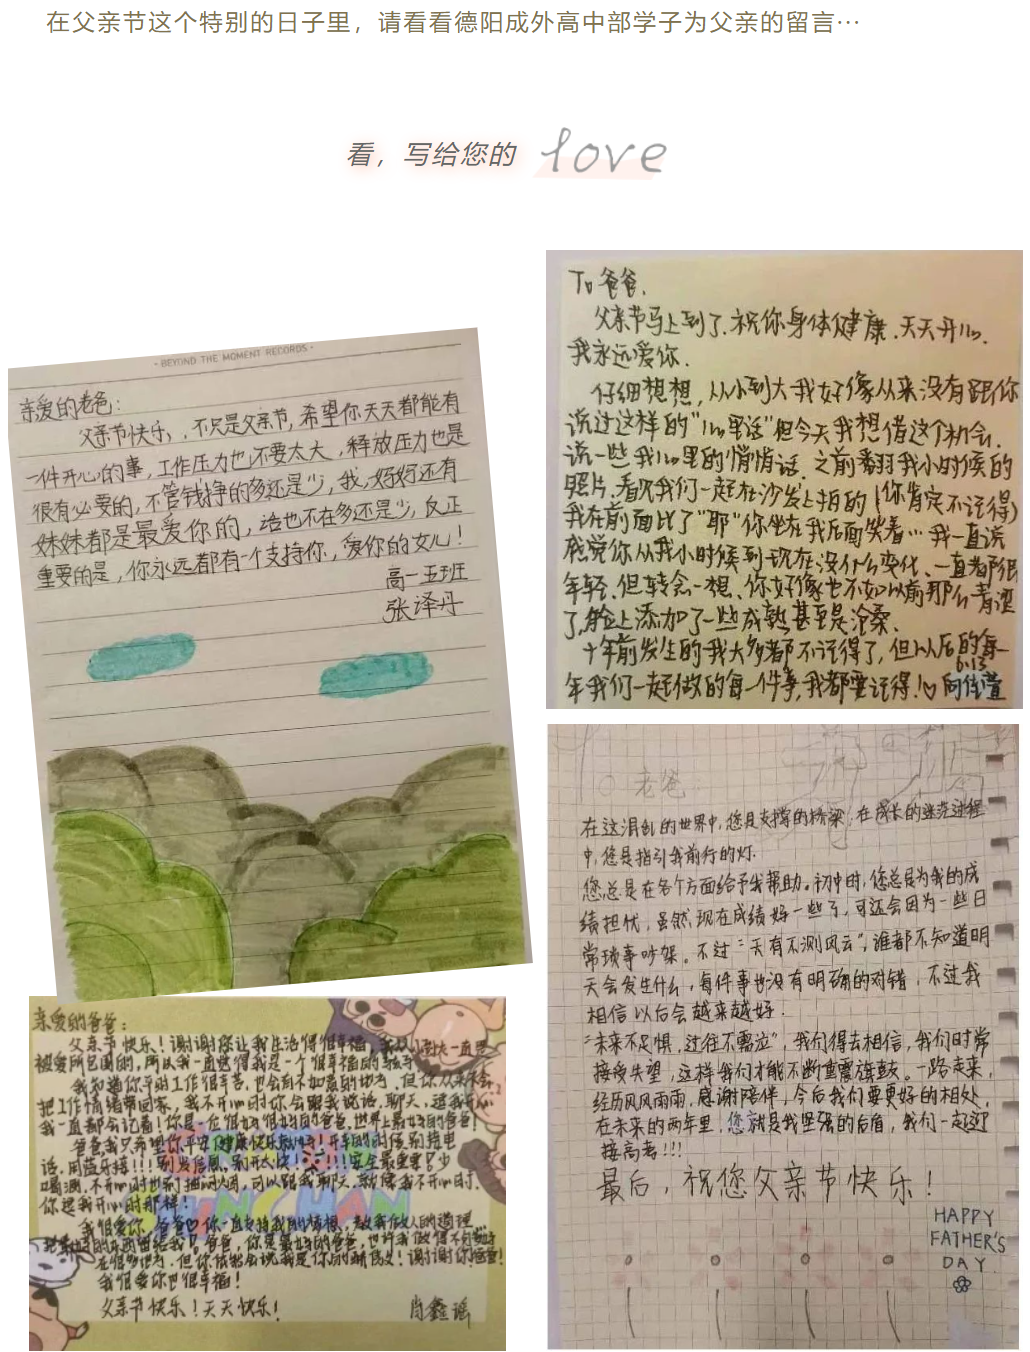 在父亲节这个特别的日子里，请看看德阳成外高中部学子为父亲的留言…
看，写给您的 love
- BEYOND THE MOMENT RECORDS -
亲爱的老爸：
父亲节快乐，不只是父亲节，希望你天天都能有
一件开心的事，工作压力也不要太大，释放压力也是
很有必要的，不管钱挣的多还是少，我，妈妈还有
妹妹都是最爱你的，话也不在多还是少，反正
重要的是，你永远都有一个支持你，爱你的女儿！
高一五班
张译丹
To 爸爸.
父亲节马上到了.祝你身体健康.天天开心.
我永远爱你.
仔细想想，从小到大我好像从来没有跟你
说过这样的"心里话"但今天我想借这个机会.
说一些我心里的悄悄话.之前翻我小时候的
照片.看次我们一起在沙发上拍的(你肯定不记得)
我在前面比了"耶"你坐在我后面笑着…我一直说
感觉你从我小时候到现在没什么变化、一直都很
年轻.但转念一想、你好像也不如以前那么青涩
了,脸上添加了一些成熟甚至是沧桑.
十年前发生的我大多都不记得了，但以后的每一
6.13
年我们一起做的每一件事,我都要记得!♡ 向佳萱
老爸
在这混乱的世界中，您是支撑的桥梁，在成长的迷茫过程
中，您是指引我前行的灯.
您总是在各个方面给予我帮助。初中时，您总是为我的成
绩担忧，虽然现在成绩好一些了，可还会因为一些日
常琐事吵架。不过"天有不测风云"，谁都不知道明
天会发生什么，每件事也没有明确的对错，不过我
相信以后会越来越好.
"未来不足惧，过往不需泣"，我们得去相信，我们时常
接受失望，这样我们才能不断重震旗鼓。一路走来，
经历风风雨雨，感谢陪伴，今后我们要更好的相处，
在未来的两年里，您就是我坚强的后盾，我们一起迎
接高考!!!
最后，祝您父亲节快乐！
HAPPY
FATHER'S
DAY
亲爱的爸爸：
父亲节快乐！谢谢您让我生活得很幸福，我从小到大一直
被爱所包围的,所以我一直觉得我是一个很幸福的孩子
我知道你平时工作很辛苦，也会有不如意的地方，但你从来不会
把工作情绪带回家，我不开心时你会跟我说话、聊天，逗我开心
我一直都会记着！你是一位很好很好的爸爸,世界上最好的爸爸！
爸爸,我只希望你平安健康快乐就好！开车的时候别接电
话，用蓝牙接!!!别发信息,别开太快!!!安全最重要!少
喝酒，不开心时也别抽闷烟，可以跟我聊天，就像我不开心时，
你逗我开心时那样！
我很爱你，爸爸♡你一直支持我的梦想，教我做人的道理，
把最好的东西留给我！爸爸，你是最好的爸爸，也许我做得不够好
在很多地方，但你依然会说我是你的骄傲！谢谢你！爸爸！
我很爱你也很幸福！
父亲节快乐！天天快乐！ 肖鑫瑶